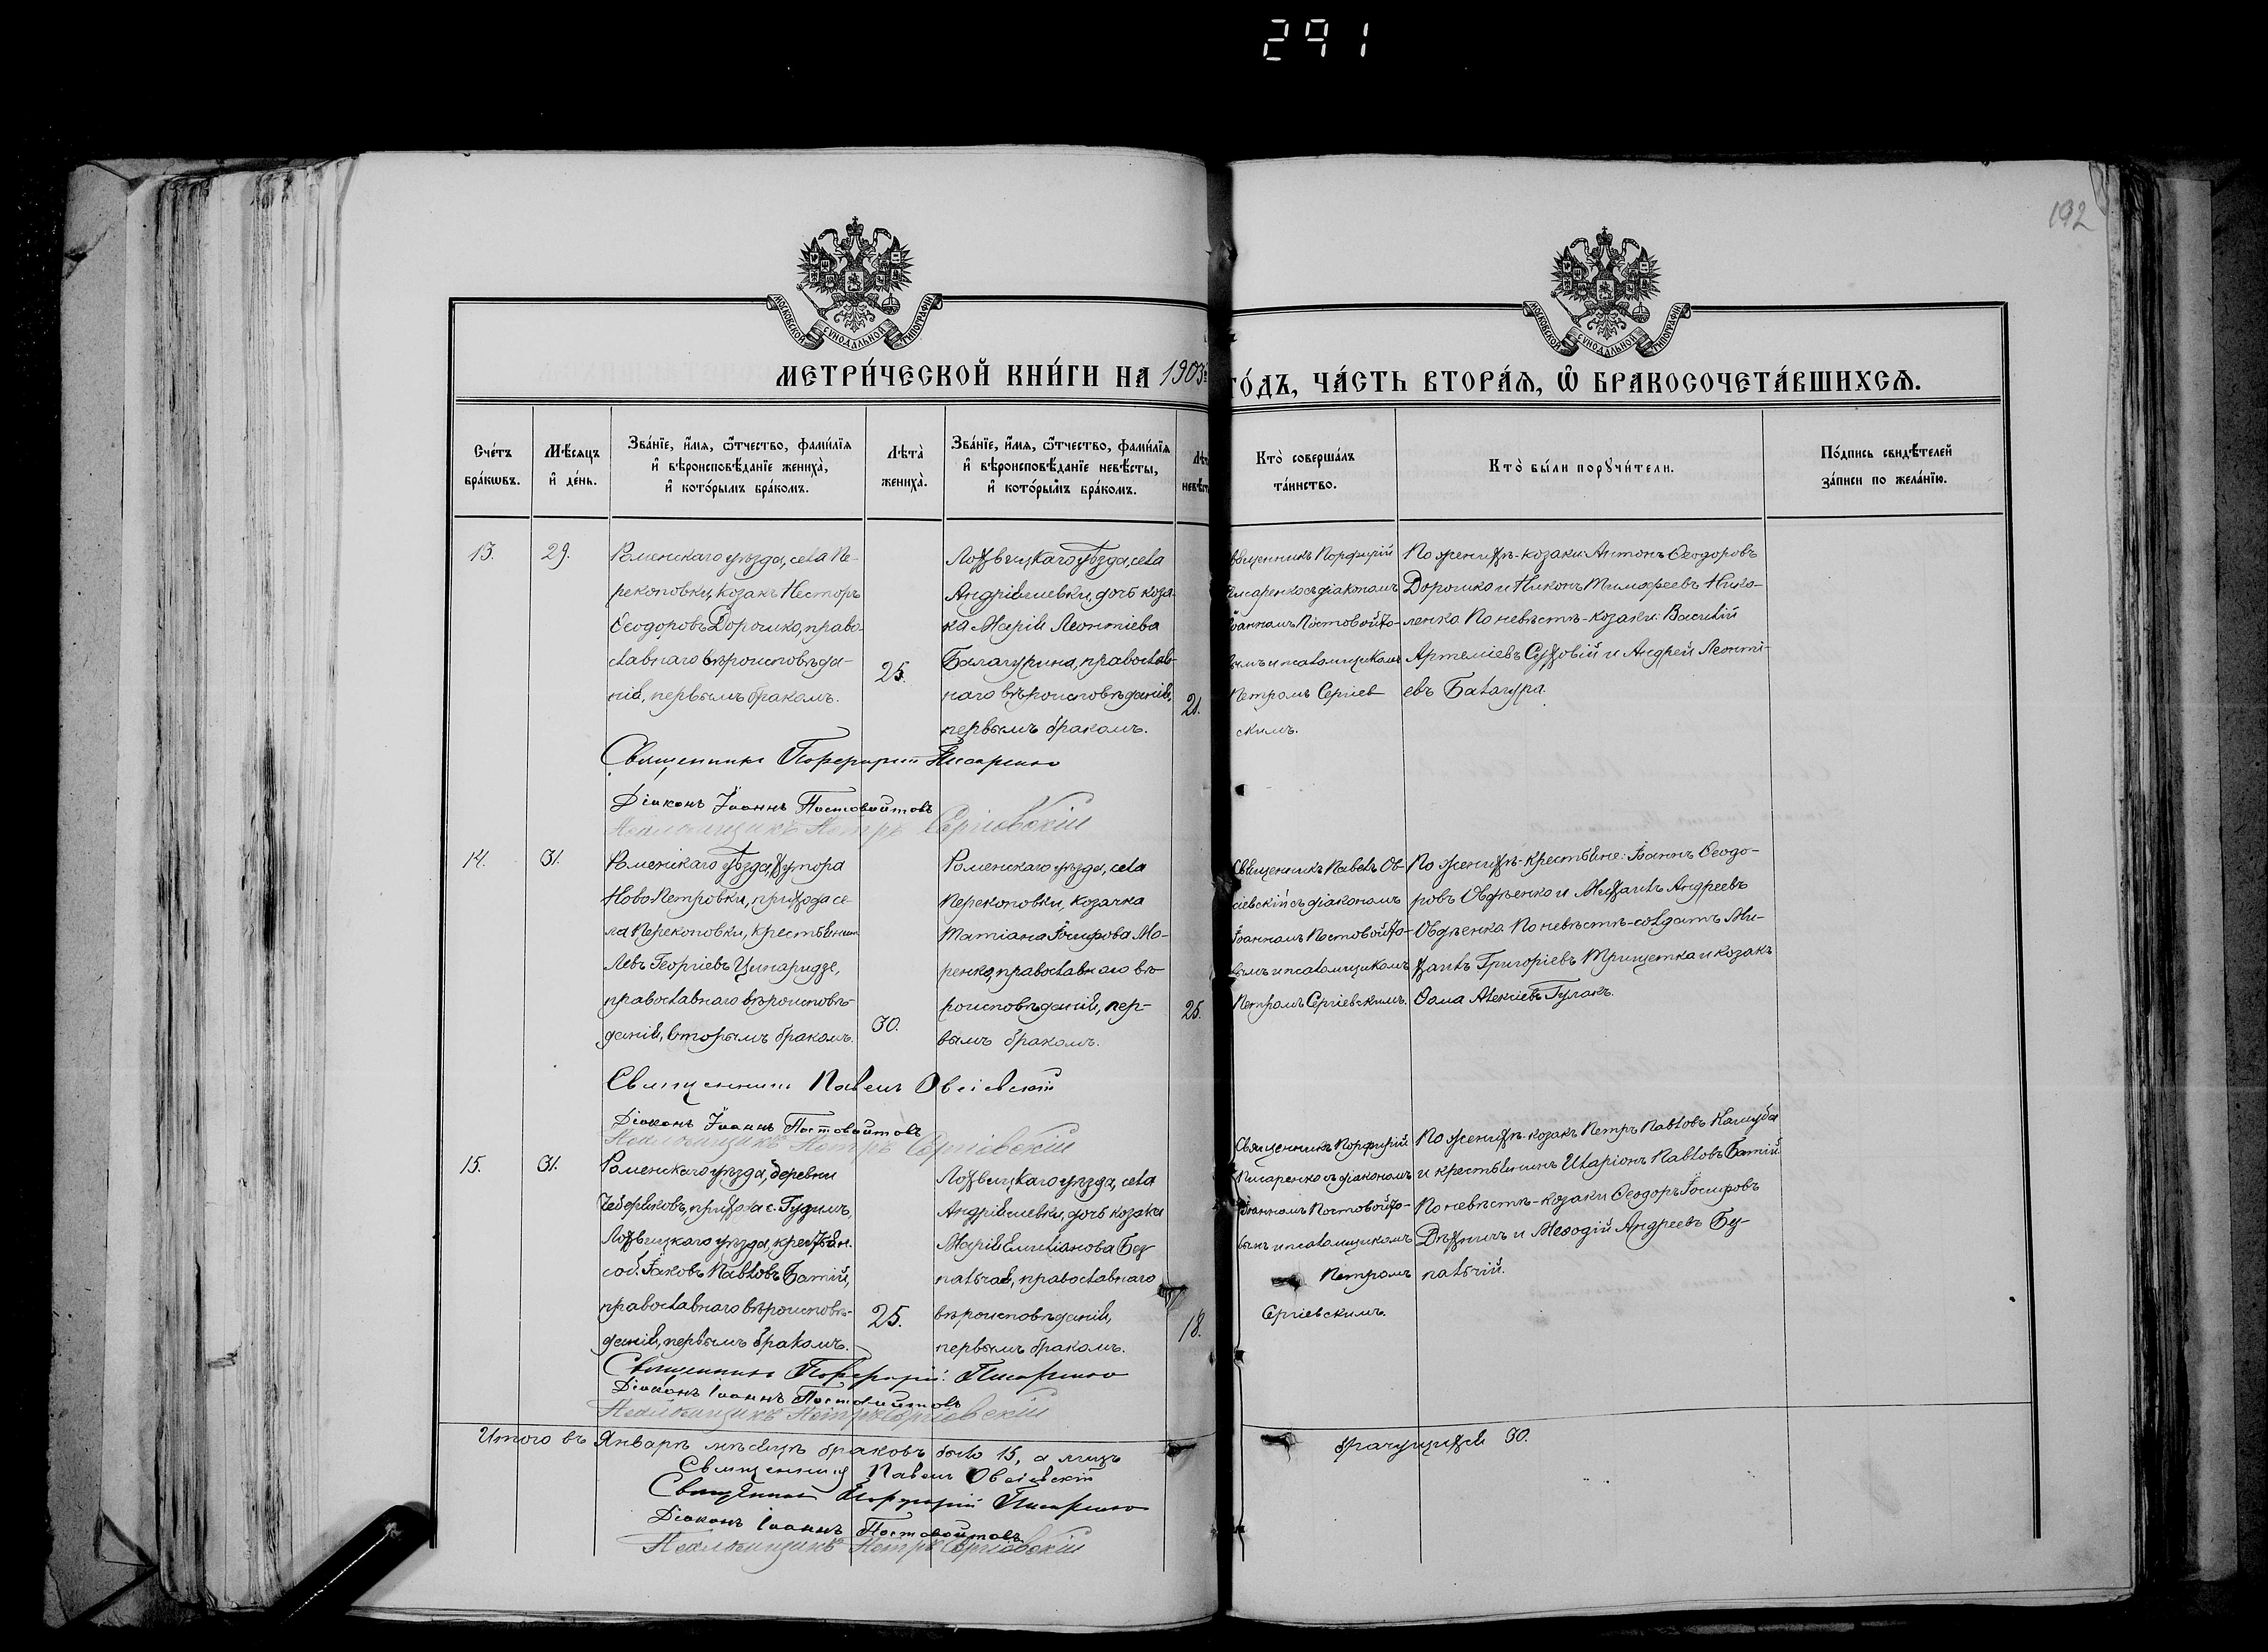 291
192
МОСКОВСКОЙ СѴНОДАЛЬНОЙ ТИПОГРАФІИ
МОСКОВСКОЙ СѴНОДАЛЬНОЙ ТИПОГРАФІИ
МЕТРИ́ЧЕСКОЙ КНИ́ГИ НА 1903
ГО́ДЪ, ЧА́СТЬ ВТОРА́Ѧ, Ѽ БРАКОСОЧЕТА́ВШИХСѦ.
Сче́тъ
бра́кѡвъ.
Мѣ́сяцъ
и҆ де́нь.
Зва́нїе, и҆́мя, ѻ҆́тчество, фами́лїя
и҆ вѣроисповѣ́данїе жениха̀,
и҆ кото́рымъ бра́комъ.
Лѣта̀
жениха̀.
Зва́нїе, и҆́мя, ѻ҆́тчество, фами́лїя
и҆ вѣроисповѣ́данїе невѣ́сты,
и҆ кото́рымъ бра́комъ.
Кто̀ соверша́лъ
та́инство.
Кто̀ бы́ли порꙋчи́тели.
По́дпись свидѣ́телей
за́писи по жела́нїю.
13.
29.
Роменскаго уѣзда, села Пе-
рекоповки, козакъ Несторъ
Ѳеодоровъ Дорошко, право-
славнаго вѣроисповѣда-
нія, первымъ бракомъ.
25.
Лохвицкаго уѣзда, села
Андріяшевки, дочь коза-
ка Марія Леонтіева
Балагурина, православ-
наго вѣроисповѣданія,
первымъ бракомъ.
21.
Священникъ Порфирій
Писаренко съ діакономъ
Іоанномъ Постовойто-
вымъ и псаломщикомъ
Петромъ Сергіев
скимъ.
По женихѣ - козаки: Антонъ Ѳеодоровъ
Дорошко и Никонъ Тимофеевъ Нико-
ленко. По невѣстѣ - козаки: Василій
Артеміевъ Суховій и Андрей Леонті-
евъ Балагура.
Священникъ Порфирій Писаренко
Діаконъ Іоаннъ Постовойтовъ
Псаломщикъ Петръ Сергіевскій
14.
31.
Роменскаго уѣзда, хутора
Ново Петровки, прихода се-
ла Перекоповки, крестьянин
Левъ Георгіевъ Цинаридзе,
православнаго вѣроисповѣ-
данія, вторымъ бракомъ.
30.
Роменскаго уѣзда, села
Перекоповки, козачка
Татіана Іосифова Мо-
ренко, православнаго вѣ-
роисповѣданія, пер-
вымъ бракомъ.
25.
Священникъ Павелъ Ов-
сіевскій съ діакономъ
Іоанномъ Постовойто-
вымъ и псаломщикомъ
Петромъ Сергіевскимъ.
По женихѣ - крестьяне: Іоаннъ Ѳеодо-
ровъ Овдѣенко и Михаилъ Андреевъ
Овдѣенко. По невѣстѣ - солдатъ Ми-
хаилъ Григоріевъ Трищетка и козакъ
Ѳома Алексіевъ Гулакъ.
Священникъ Павелъ Овсіевскій
Діаконъ Іоаннъ Постовойтовъ
Псаломщикъ Петръ Сергіевскій
15.
31.
Роменскаго уѣзда, деревни
прихода с. Гудимъ,
Лохвицкаго уѣзда, крестьян.
соб. Іаковъ Павловъ Батій,
православнаго вѣроисповѣ-
данія, первымъ бракомъ.
25.
Лохвицкаго уѣзда, села
Андріяшевки, дочь козака
Марія Емиліанова Без
палчая, православнаго
вѣроисповѣданія,
первымъ бракомъ.
18.
Священникъ Порфирій
Писаренко съ діакономъ
Іоанномъ Постовойто-
вымъ и псаломщикомъ
Петромъ
Сергіевскимъ.
По женихѣ - козакъ Петръ Павловъ Калиуба
и крестьянинъ Иларіонъ Павловъ Батій
По невѣстѣ - козаки Ѳеодоръ Іосифовъ
и Меѳодій Андреевъ Бу-
палчій.
Священникъ Порфирій Писаренко
Діаконъ Іоаннъ Постовойтовъ
Псаломщикъ Петръ Сергіевскій
Итого въ Январѣ мѣсяцѣ браковъ было 15, а лицъ
брачущихся 30.
Священникъ Павелъ Овсіевскій
Священникъ Порфирій Писаренко
Діаконъ Іоаннъ Постовойтовъ
Псаломщикъ Петръ Сергіевскій